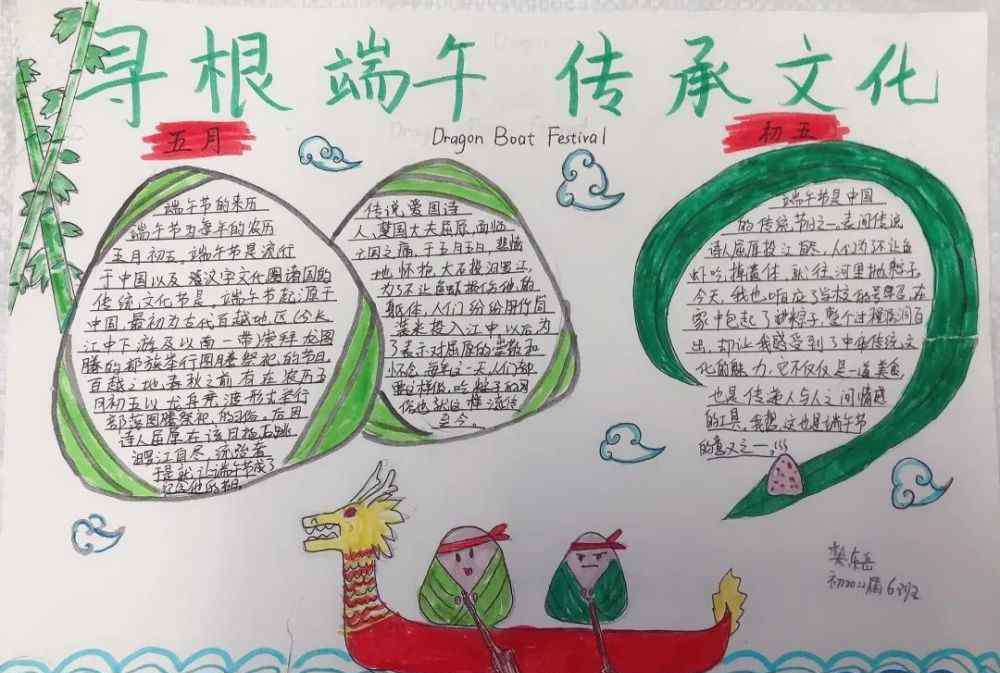 寻根端午 传承文化
五月
Dragon Boat Festival
初五
端午节的来历
端午节为每年的农历
五月初五，端午节是流行
于中国以及汉字文化圈诸国的
传统文化节日，端午节起源于
中国，最初为古代百越地区（长
江中下游及以南一带崇拜龙图
腾的部族举行图腾祭祀的节日，
百越之地春秋之前有在农历五
月初五以龙舟竞渡形式举行
部落图腾祭祀的习俗。后因
诗人屈原在该日抱石跳
汨罗江自尽，统治者
于是就让端午节成了
纪念他的节日。
传说，爱国诗
人，楚国大夫屈原，面临
亡国之痛，于五月五日，悲愤
地怀抱大石投汨罗江，
为了不让鱼虾他的
躯体，人们纷纷用竹筒
装米投入江中，以后，为
了表示对屈原的崇敬和
怀念，每年这一天，人们都
吃粽子的风
俗也就这样流传
至今。
端午节是中国
的传统节日之一，民间传说
诗人屈原投江自尽，人们为不让鱼
虾吃掉遗体，就往河里抛粽子，
今天，我也响应了学校的号召，在
家中包起了粽子，整个过程
出，却让我感受到了中华传统文
化的魅力，它不仅仅是一道美食，
也是传递人与人之间情感
的工具，我想，这也是端午节
的意义之一。!!!
初2022届6班